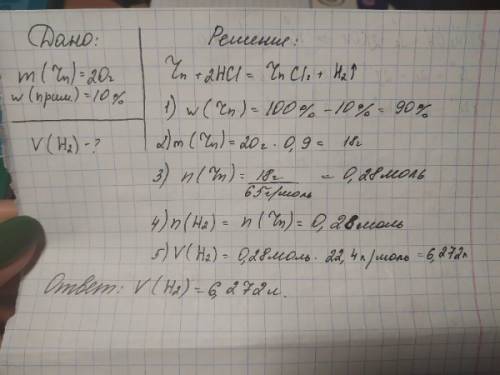 Дано:
m(Zn)=20г
w(прим)=10%
V(H₂)-?
Решение:
Zn+2HCl=ZnCl₂+H₂↑
1) w(Zn)=100%-10%=90%
2) m(Zn)=20г·0,9=18г
3) n(Zn)=18г/65г/моль=0,28моль
4) n(H₂)=n(Zn)=0,28моль
5) V(H₂)=0,28моль·22,4л/моль=6,272л
Ответ: V(H₂)=6,272л.